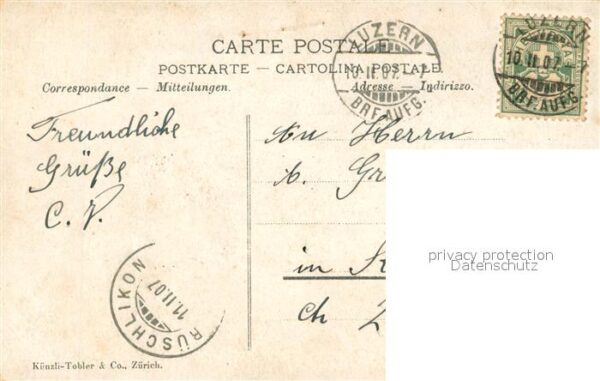 CARTE POSTALE
POSTKARTE – CARTOLINA POSTALE
Correspondance — Mitteilungen.
Adresse — Indirizzo.
LUZERN
10.II.07.–7
BRF. AUFG.
LUZERN
10.II.07.
BRF. AUFG.
Freundliche
Grüße
C. V.
An Herrn
A. Gr
in
ch Z
privacy protection
Datenschutz
RÜSCHLIKON
11.II.07
Künzli-Tobler & Co., Zürich.